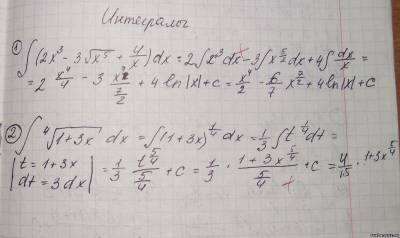 Интегралы
① ∫(2x³ - 3√x⁵ + 4/x)dx = 2∫x³dx - 3∫x^(5/2)dx + 4∫dx/x =
= 2 x⁴/4 - 3 x^(7/2)/(7/2) + 4 ln|x| + c = x⁴/2 - 6/7 x^(7/2) + 4 ln|x| + c
② ∫ ⁴√(1+3x) dx = ∫(1+3x)^(1/4) dx = 1/3 ∫ t^(1/4) dt =
|t = 1+3x
dt = 3dx| = 1/3 t^(5/4)/(5/4) + c = 1/3 · 1+3x^(5/4)/(5/4) + c = 4/15 · 1+3x^(5/4)